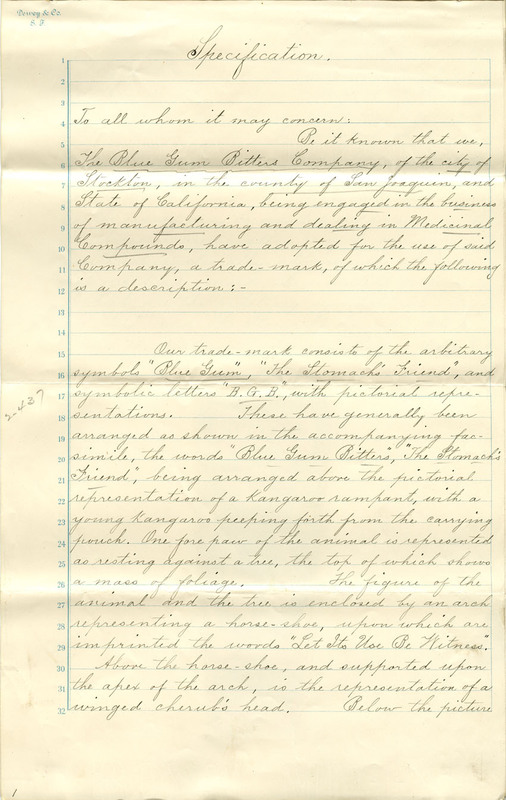 Dewey & Co.
S. F.
Specification.
1
2
3
4 To all whom it may concern:
5 Be it known that we,
6 The Blue Gum Bitters Company, of the city of
7 Stockton, in the county of San Joaquin, and
8 State of California, being engaged in the business
9 of manufacturing and dealing in Medicinal
10 Compounds, have adopted for the use of said
11 Company, a trade-mark, of which the following
12 is a description:-
13
14
15 Our trade-mark consists of the arbitrary
16 symbols "Blue Gum", "The Stomach's Friend", and
17 symbolic letters "B.G.B.", with pictorial repre-
18 sentations. These have generally been
19 arranged as shown in the accompanying fac-
20 simile, the words "Blue Gum Bitters", "The Stomach's
21 Friend", being arranged above the pictorial
22 representation of a Kangaroo rampant, with a
23 young Kangaroo peeping forth from the carrying
24 pouch. One fore paw of the animal is represented
25 as resting against a tree, the top of which shows
26 a mass of foliage. The figure of the
27 animal and the tree is enclosed by an arch
28 representing a horse-shoe, upon which are
29 imprinted the words "Let Its Use Be Witness".
30 Above the horse-shoe, and supported upon
31 the apex of the arch, is the representation of a
32 winged cherub's head. Below the picture
2-437
1